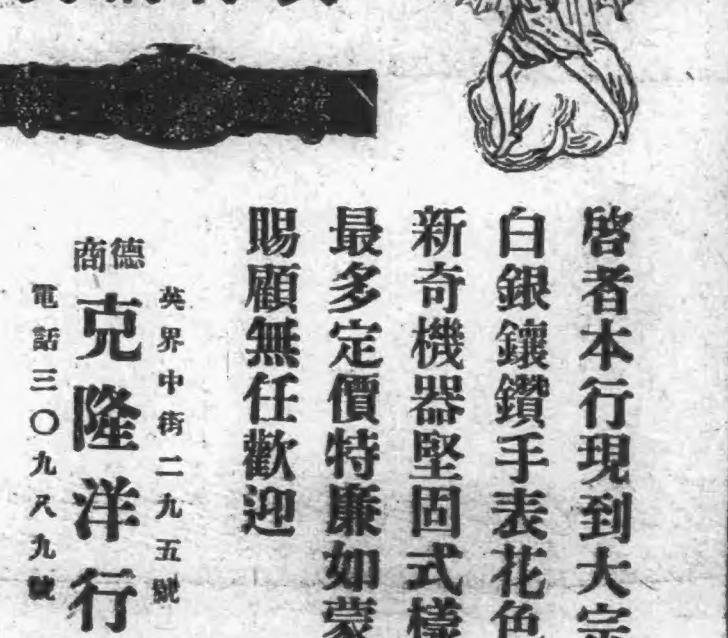 啓者本行現到大宗
白銀鑲鑽手表花色
新奇機器堅固式樣
最多定價特廉如蒙
賜顧無任歡迎
英界中街二九五號
德商
克隆洋行
電話三〇九八九號